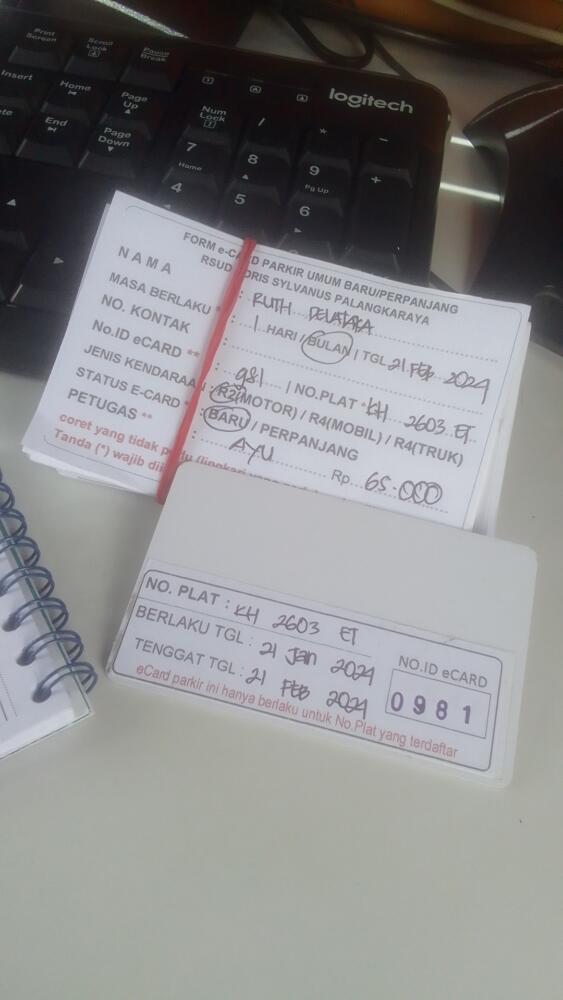 Print
Screen
Scroll
Lock
Pause
Break
Insert
Home
Page
Up
End
Page
Down
Num
Lock
/
*
-
7
Home
8
9
Pg Up
+
4
5
6
logitech
FORM e-CARD PARKIR UMUM BARU/PERPANJANG
RSUD DORIS SYLVANUS PALANGKARAYA
NAMA : RUTH
MASA BERLAKU * : 1 HARI / BULAN / TGL 21 FEB 2024
NO. KONTAK :
No.ID eCARD ** : 981 / NO.PLAT * KH 2603 ET
JENIS KENDARAAN : R2(MOTOR) / R4(MOBIL) / R4(TRUK)
STATUS E-CARD * : BARU / PERPANJANG
PETUGAS ** : AYU Rp. 65.000
coret yang tidak perlu (lingkari
Tanda (*) wajib
NO. PLAT : KH 2603 ET
BERLAKU TGL : 21 Jan 2024
TENGGAT TGL : 21 FEB 2024
NO.ID eCARD
0981
eCard parkir ini hanya berlaku untuk No.Plat yang terdaftar